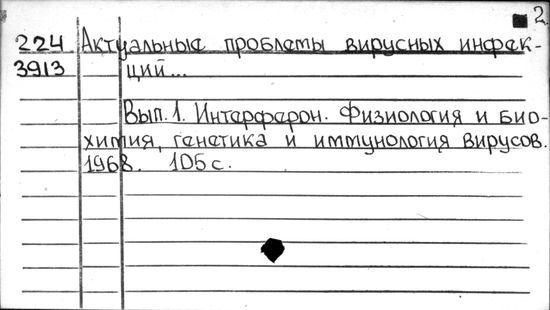 2
224 Актуальные проблемы вирусных инфек-
3913 ций...
Вып. 1. Интерферон. Физиология и био-
химия, генетика и иммунология вирусов.
1968. 105 с.